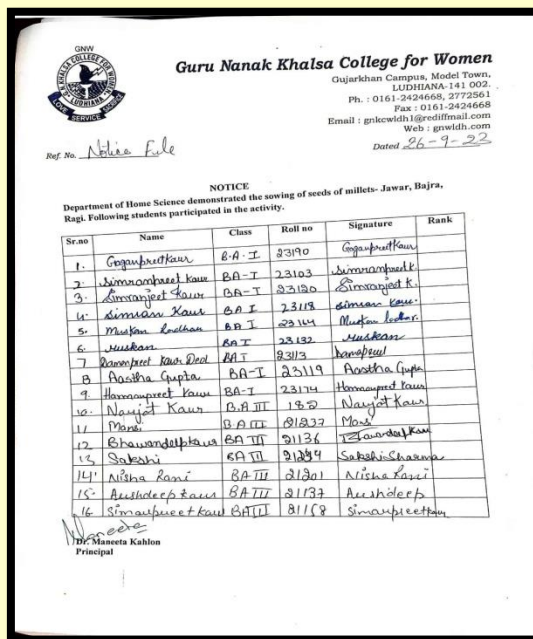 GNW
N. KHALSA COLLEGE FOR WOMEN
LUDHIANA
LOVE SERVICE
Guru Nanak Khalsa College for Women
Gujarkhan Campus, Model Town,
LUDHIANA-141 002.
Ph. : 0161-2424668, 2772561
Fax : 0161-2424668
Email : gnkcwldh1@rediffmail.com
Web : gnwldh.com
Ref. No. Notice File
Dated 26-9-23
NOTICE
Department of Home Science demonstrated the sowing of seeds of millets- Jawar, Bajra,
Ragi. Following students participated in the activity.
Sr.no Name Class Roll no Signature Rank
1. Gaganpreet Kaur B.A-I 23190 Gaganpreet Kaur
2. Simranpreet Kaur BA-I 23103 Simranpreet K.
3. Simranjeet Kaur BA-I 23120 Simranjeet K.
4. Simran Kaur BA I 23118 Simran Kaur.
5. Muskan BA I 23164 Muskan
6. Muskan BA I 23132 Muskan
7 Damanpreet Kaur Deol BA I 23113
8 Aastha Gupta BA-I 23119 Aastha Gupta
9. Harmanpreet Kaur BA-I 23174 Harmanpreet Kaur
10. Navjot Kaur B.A III 182 Navjot Kaur
11 Mansi B.A III 21237 Mansi
12 Bhawandeep Kaur BA III 21136 Bhawandeep Kaur
13 Sakshi BA III Sakshi Sharma
14. Nisha Rani BA III 21201 Nisha Rani
15. Arshdeep Kaur BA III 21137 Arshdeep
16. Simarpreet Kaur BA III 21158 Simarpreet Kaur
Maneeta
Dr. Maneeta Kahlon
Principal